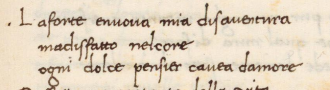 . La forte enuova mia disaventura
madisfatto nelcore
ogni dolce pensier cavea damore